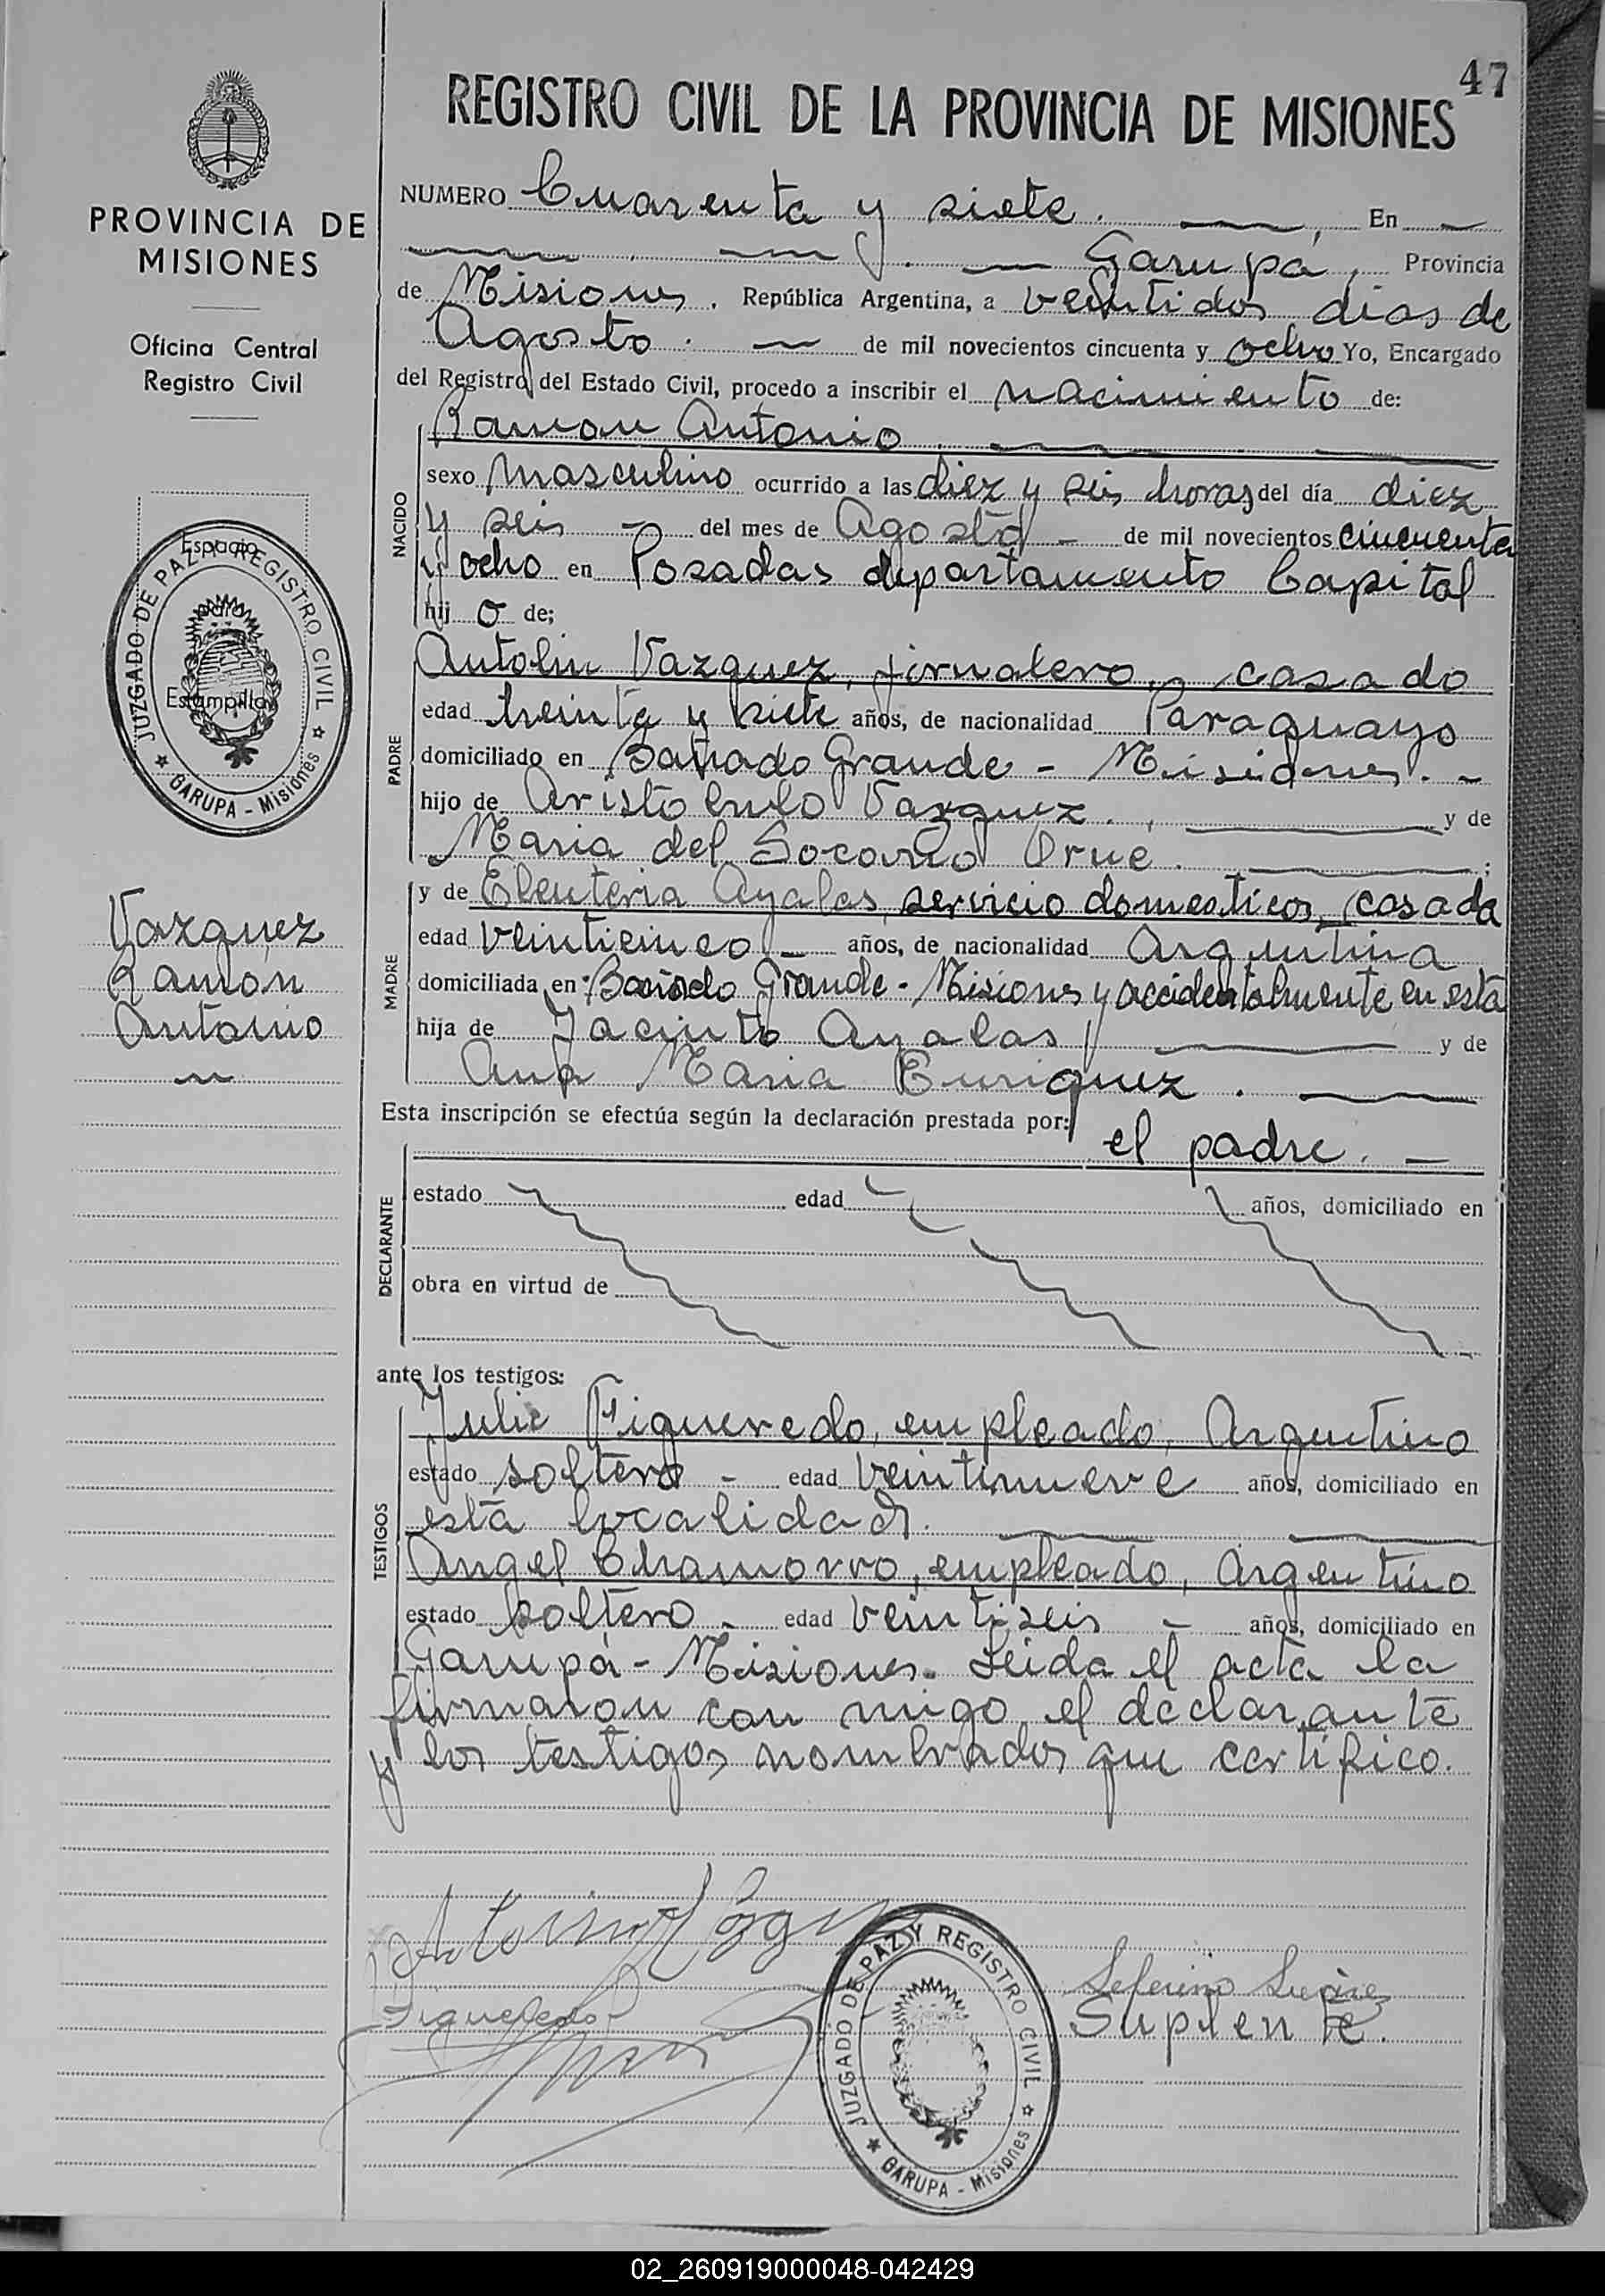 47
REGISTRO CIVIL DE LA PROVINCIA DE MISIONES
PROVINCIA DE
MISIONES
Oficina Central
Registro Civil
Espacio
para
Estampilla
JUZGADO DE PAZ Y REGISTRO CIVIL
GARUPA - Misiones
Vazquez
Ramón
Antonio
NUMERO Cuarenta y siete. En
Garupá, Provincia
de Misiones. República Argentina, a veintidos dias de
Agosto. de mil novecientos cincuenta y ocho Yo, Encargado
del Registro del Estado Civil, procedo a inscribir el nacimiento de:
Ramon Antonio.
NACIDO
sexo masculino ocurrido a las diez y seis horas del día diez
y seis del mes de Agosto de mil novecientos cincuenta
y ocho en Posadas departamento Capital
hij o de;
PADRE
Antolin Vazquez, jornalero, casado
edad treinta y siete años, de nacionalidad Paraguayo
domiciliado en Bañado Grande - Misiones. -
hijo de Aristobulo Vazquez. y de
Maria del Socorro Orue. ;
MADRE
y de Eleuteria Ayalas, servicio domesticos, casada
edad veinticinco años, de nacionalidad Argentina
domiciliada en Bañado Grande - Misiones y accidentalmente en esta
hija de Jacinto Ayalas y de
Ana Maria Enriquez.
Esta inscripción se efectúa según la declaración prestada por:
el padre. -
DECLARANTE
estado edad años, domiciliado en
obra en virtud de
ante los testigos:
TESTIGOS
Julio Figueredo, empleado, Argentino
estado soltero - edad veintinueve años, domiciliado en
esta localidad.
Angel Chamorro, empleado, Argentino
estado soltero - edad veintiseis - años, domiciliado en
Garupá - Misiones. Leida el acta la
firmaron con migo el declarante
y los testigos nombrados que certifico.
Figueredo
JUZGADO DE PAZ Y REGISTRO CIVIL
GARUPA - Misiones
Suplente.
02_260919000048-042429